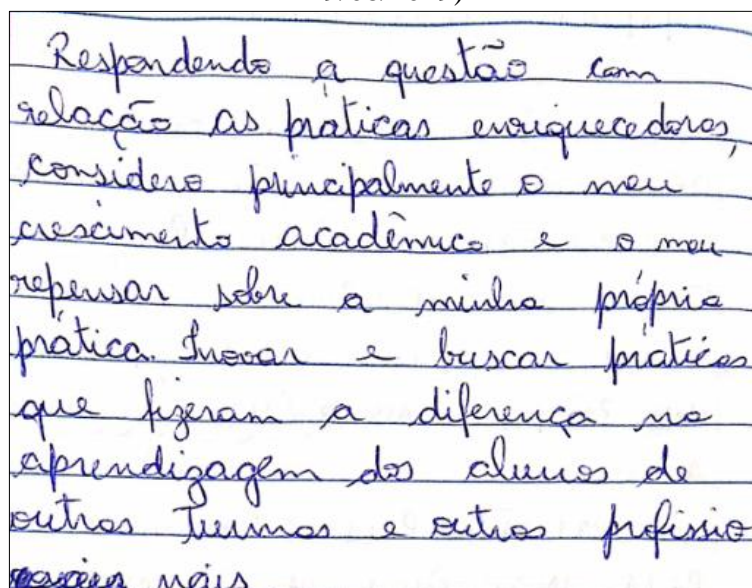 Respondendo a questão com
relação as práticas enriquecedoras,
considero principalmente o meu
crescimento acadêmico e o meu
repensar sobre a minha própria
prática. Inovar e buscar práticas
que fizeram a diferença na
aprendizagem dos alunos de
outras turmas e outros profissio